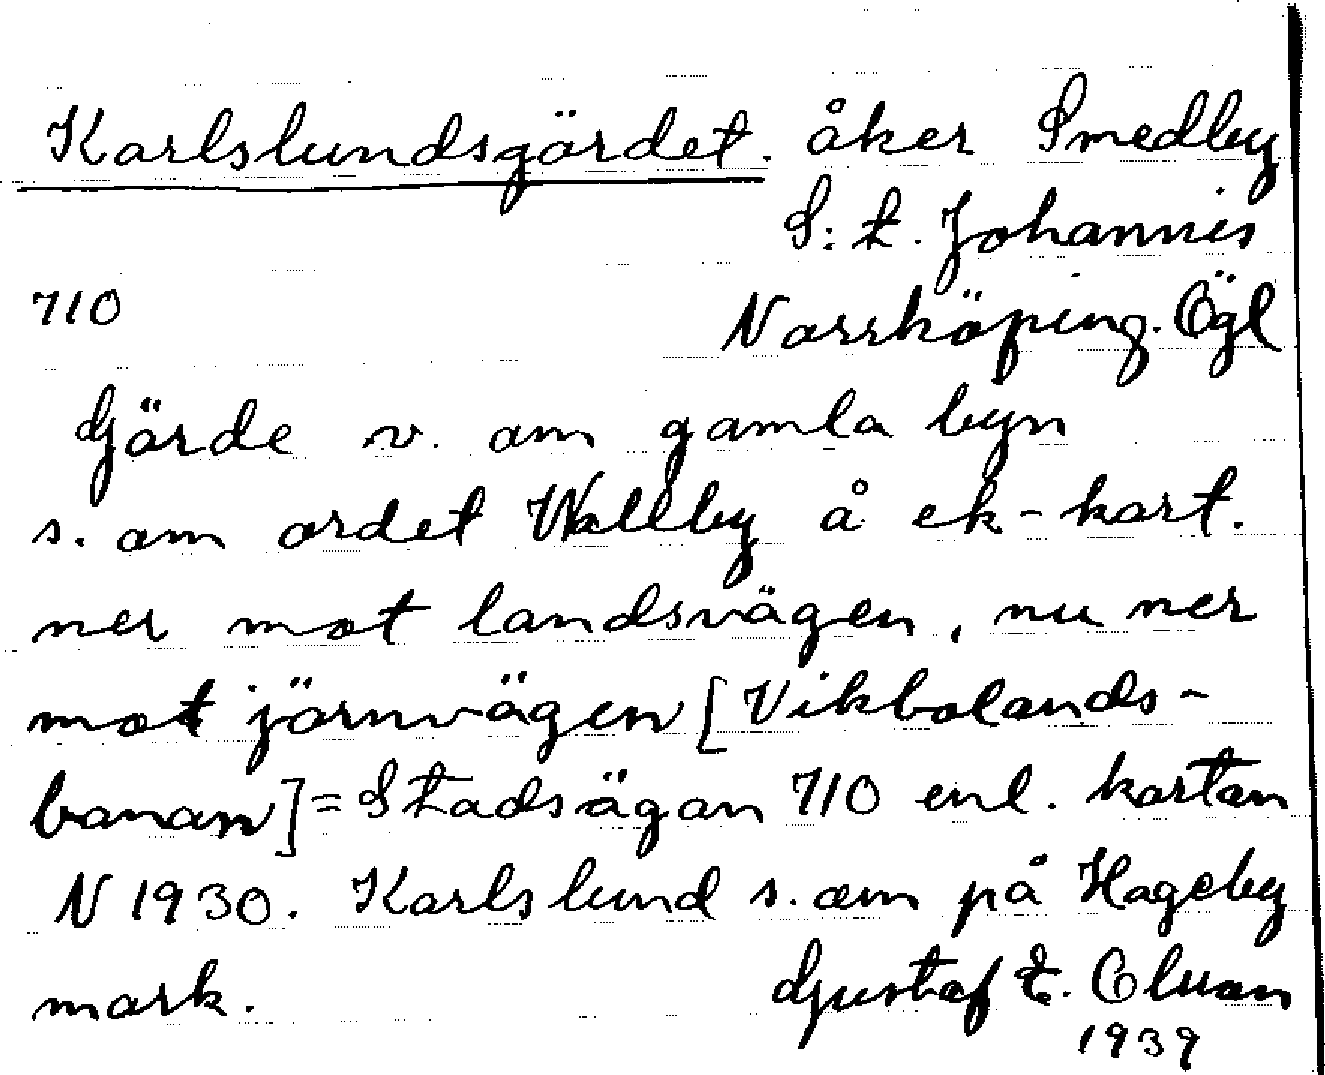 Karlslundsgärdet. åker Smedby
S:t. Johannis
710 Norrköping. Ögl
Gärde v. om gamla byn
s. om ordet Wallby å ek-kart.
ner mot landsvägen, nu ner
mot järnvägen [Vikbolands-
banan] = Stadsägan 710 enl. kartan
N 1930. Karlslund s. om på Hageby
mark. Gustaf E. Olsson
1939